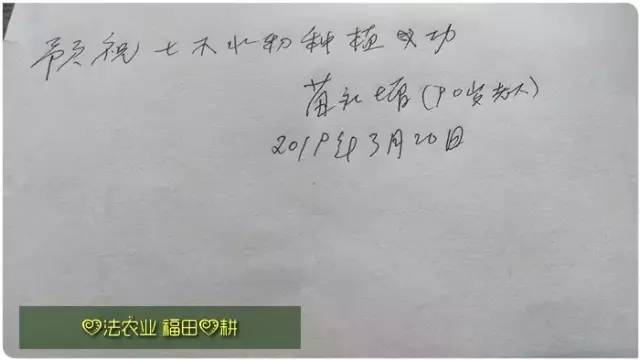 预祝七不水稻种植成功
(90岁老人)
2019年3月20日
法农业 福田 耕